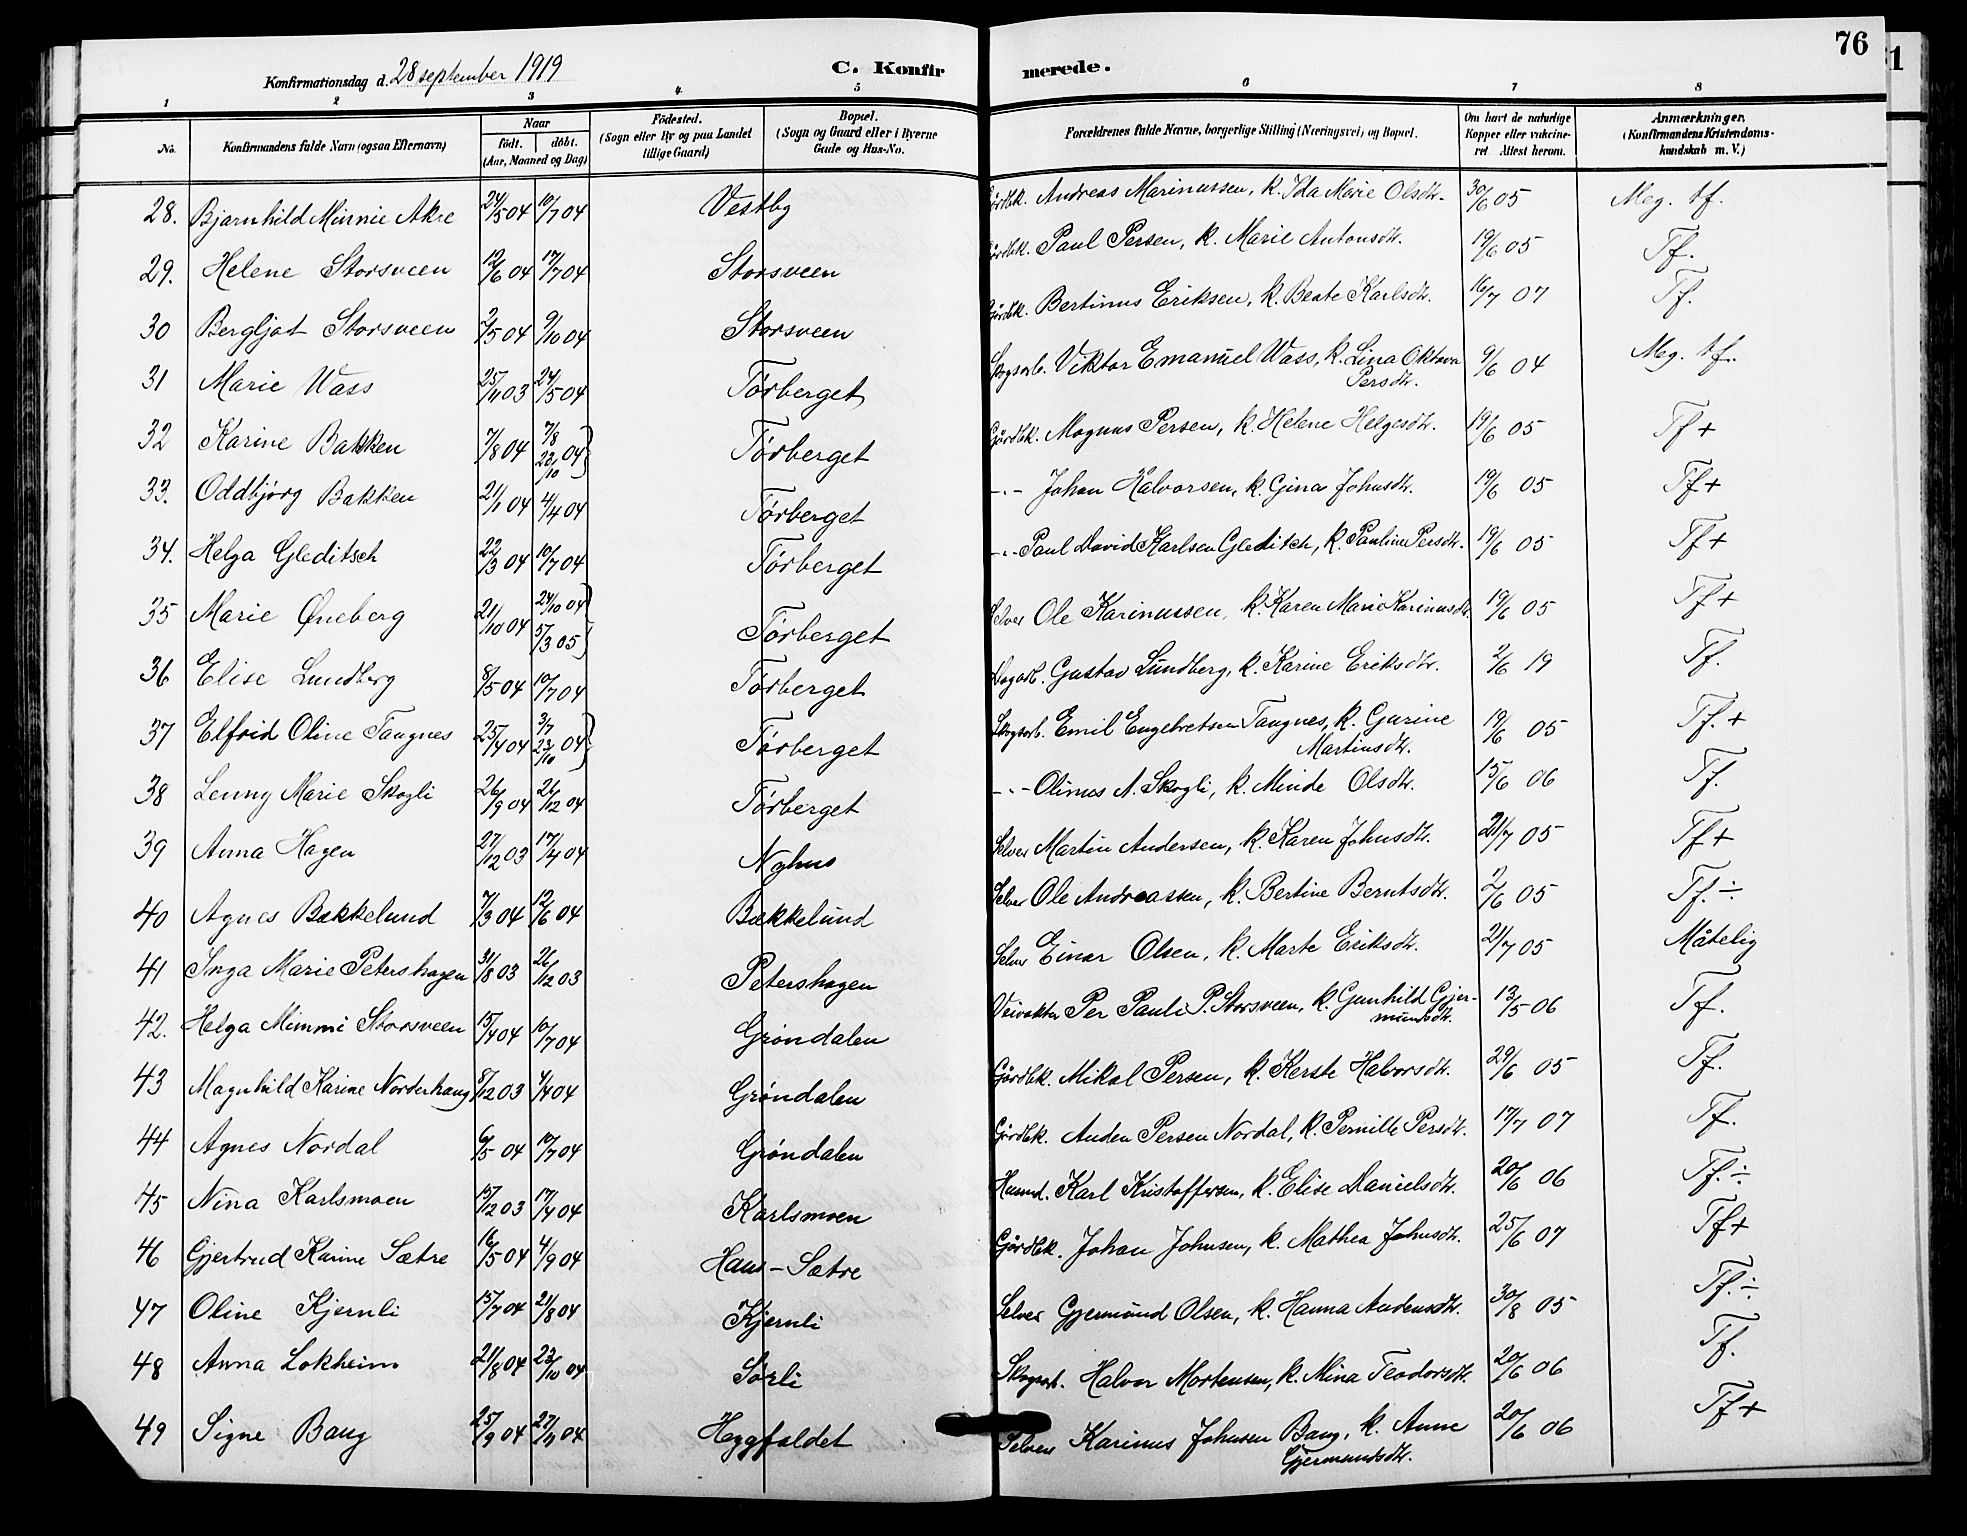 76
1
Konfirmationsdag d. 28 september 1919
C. Konfirmerede.
1 2 3 4 5 6 7 8
No.
Konfirmandens fulde Navn (ogsaa Efternavn)
Naar
født. døbt.
(Aar, Maaned og Dag)
Fødested.
(Sogn eller By og paa Landet
tillige Gaard)
Bopæl.
(Sogn og Gaard eller i Byerne
Gade og Hus-No.
Forældrenes fulde Navne, borgerlige Stilling (Næringsvei) og Bopæl.
Om havt de naturlige
Kopper eller vakcine-
ret Attest herom.
Anmærkninger.
(Konfirmandens Kristendoms-
kundskab m. V.)
28. Bjarnhild Minnie Akre 24/5 04 10/7 04 Vestby Gårdbk. Andreas Marinussen, k. Ida Marie Olsdtr. 30/6 05 Meg. tf.
29. Helene Storsveen 12/6 04 17/7 04 Storsveen Gårdbk. Paul Persen, k. Marie Antonsdtr. 19/6 05 Tf.
30 Bergljot Storsveen 2/5 04 9/10 04 Storsveen Gårdbk. Bertinus Eriksen, k. Beate Karlsdtr. 16/7 07 Tf.
31 Marie Wass 25/11 03 24/5 04 Tørberget Skogsarb. Viktor Emanuel Wass, k. Lina Oktava
Persdtr. 9/6 04 Meg. tf.
32 Karine Bakken 7/8 04 7/8
23/10 04} Tørberget Gårdbk. Magnus Persen, k. Helene Helgesdtr. 19/6 05 Tf +
33. Oddbjørg Bakken 21/1 04 4/4 04 Tørberget -"- Johan Halvorsen, k. Gina Johnsdtr. 19/6 05 Tf +
34. Helga Gleditsch 22/3 04 10/7 04 Tørberget -"- Paul David Karlsen Gleditch, k. Pauline Persdtr. 19/6 05 Tf +
35 Marie Øneberg 21/10 04 24/10 04
5/3 05} Tørberget Selver Ole Karinussen, k. Karen Marie Karinusdtr. 19/6 05 Tf +
36 Elise Lundberg 8/5 04 10/7 04 Tørberget Dagarb. Gustav Lundberg, k. Karine Eriksdtr. 2/6 19 Tf.
37 Elfrid Oline Tangnes 25/4 04 3/7
23/10 04} Tørberget Skogsarb. Emil Engebretsen Tangnes, k. Gurine
Martinsdtr. 19/6 05 Tf. +
38 Lenny Marie Skogli 26/9 04 26/12 04 Tørberget -"- Olinus A. Skogli, k. Minde Olsdtr. 15/6 06 Tf.
39 Anna Hagen 27/12 03 17/4 04 Nyhus Selver Martin Andersen, k. Karen Johnsdtr. 21/7 05 Tf +
40 Agnes Bækkelund 7/3 04 12/6 04 Bækkelund Selver Ole Andreassen, k. Bertine Berntsdtr. 2/6 05 Tf. ÷
41 Inga Marie Petershagen 31/8 03 26/12 03 Petershagen Selver Einar Olsen, k. Marte Eriksdtr. 21/7 05 Måtelig
42. Helga Mimmi Storsveen 15/4 04 10/7 04 Grøndalen Veivokter Per Pauli P. Storsveen, k. Gunhild Gjer-
mundsdtr. 13/5 06 Tf.
43 Magnhild Karine Norderhaug 8/12 03 4/4 04 Grøndalen Gårdbk. Mikal Persen, k. Kerste Halvorsdtr. 29/6 05 Tf.
44 Agnes Nordal 6/5 04 10/7 04 Grøndalen Gårdbk. Anden Persen Nordal, k. Pernille Persdtr. 17/7 07 Tf.
45 Nina Karlsmoen 15/12 03 17/4 04 Karlsmoen Husmd. Karl Kristoffersen, k. Elise Danielsdtr. 20/6 06 Tf. ÷
46 Gjertrud Karine Sætre 16/5 04 4/9 04 Haus-Sætre Gårdbk. Johan Johnsen, k. Mathea Johnsdtr. 25/6 07 Tf +
47 Oline Kjernli 15/7 04 21/8 04 Kjernli Selver Gjermund Olsen, k. Hanna Andensdtr. 30/8 05 Tf. ÷
48 Anna Lokheim 21/8 04 23/10 04 Sørli Skogsarb. Halvor Mortensen, k. Mina Teodorsdtr. 20/6 06 Tf.
49 Signe Bang 25/9 04 27/11 04 Heggfaldet Selver Karinus Johnsen Bang, k. Anne
Gjermundsdtr. 20/6 06 Tf +